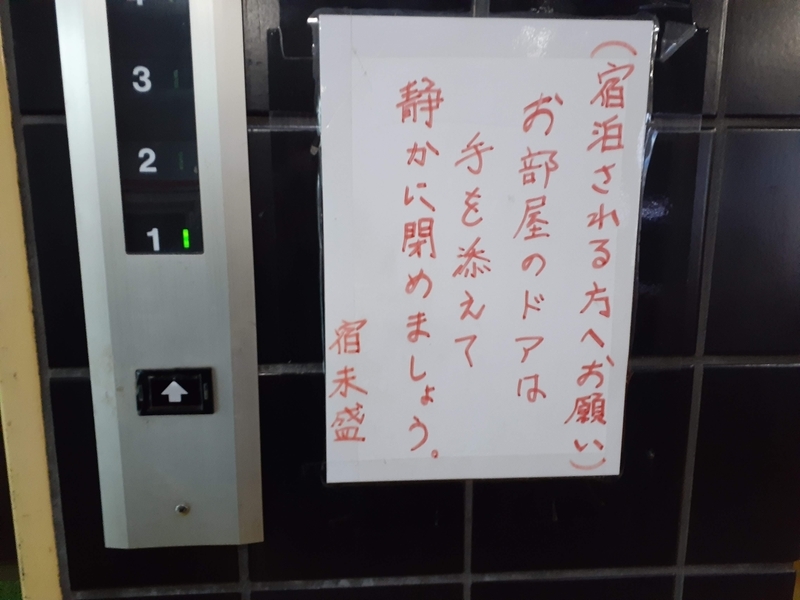 (宿泊される方へお願い)
お部屋のドアは
手を添えて
静かに閉めましょう。
宿未盛
3
2
1